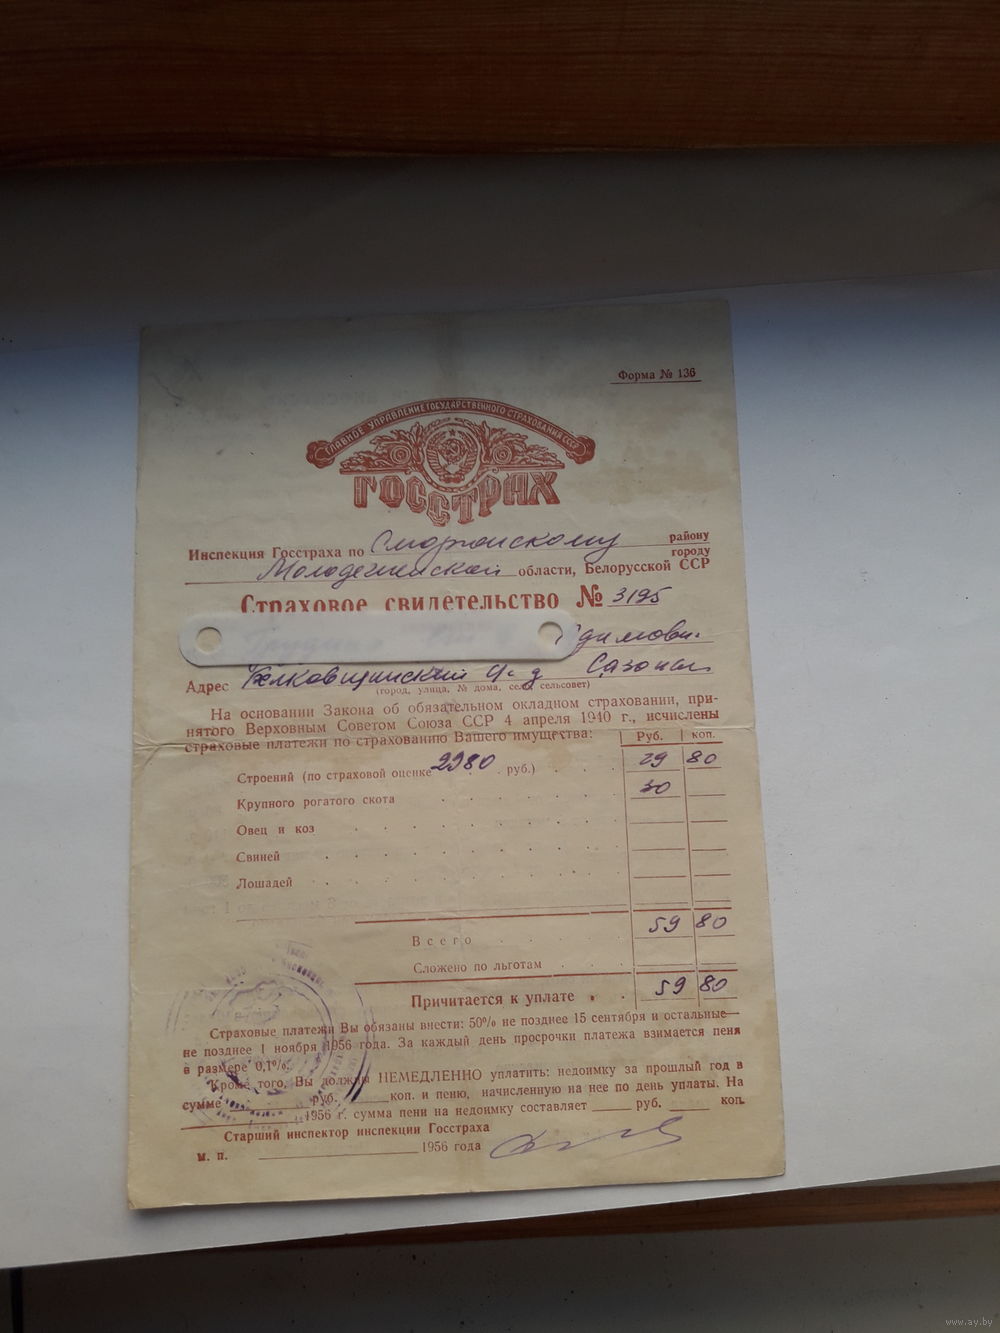 Форма № 136
ГЛАВНОЕ УПРАВЛЕНИЕ ГОСУДАРСТВЕННОГО СТРАХОВАНИЯ СССР
ГОССТРАХ
Инспекция Госстраха по Сморгонскому району
городу
Молодечненской области, Белорусской ССР
Страховое свидетельство № 3195
Адрес Белковщинский с/с д Сазоны
(город, улица, № дома, село, сельсовет)
На основании Закона об обязательном окладном страховании, при-
нятого Верховным Советом Союза ССР 4 апреля 1940 г., исчислены
страховые платежи по страхованию Вашего имущества:
Руб. коп.
Строений (по страховой оценке 2980 руб.) 29 80
Крупного рогатого скота 30
Овец и коз
Свиней
Лошадей
Всего 59 80
Сложено по льготам
Причитается к уплате 59 80
Страховые платежи Вы обязаны внести: 50% не позднее 15 сентября и остальные—
не позднее 1 ноября 1956 года. За каждый день просрочки платежа взимается пеня
в размере 0,1%.
Кроме того, Вы должны НЕМЕДЛЕННО уплатить: недоимку за прошлый год в
сумме руб. коп. и пеню, начисленную на нее по день уплаты. На
1956 г. сумма пени на недоимку составляет руб. коп.
Старший инспектор инспекции Госстраха
м. п. 1956 года
www.ay.by